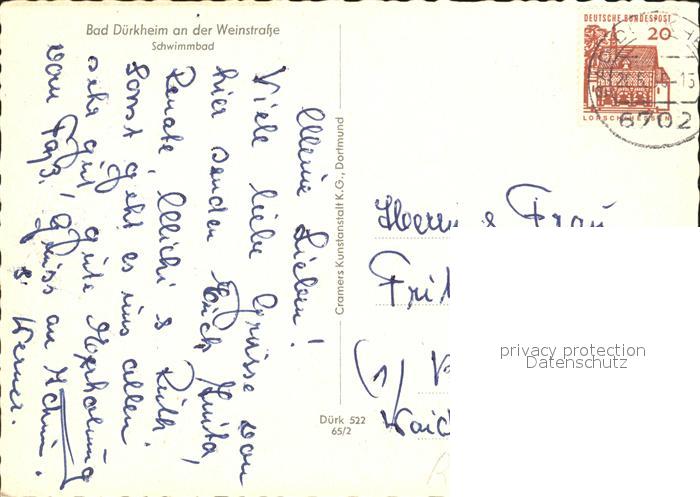 Bad Dürkheim an der Weinstraße
Schwimmbad
Meine Lieben!
Viele liebe Grüsse von
hier senden Euch Anita,
Renate, Michi & Ruth.
Sonst geht es uns allen
sehr gut gute Erholung
vom Fass! Gruss an Achim.
& Werner.
Cramers Kunstanstalt K.G., Dortmund
Dürk 522
65/2
DEUTSCHE BUNDESPOST
20
LORSCH HESSEN
6702
Herrn & Frau
Frit
(1)
Waid
privacy protection
Datenschutz